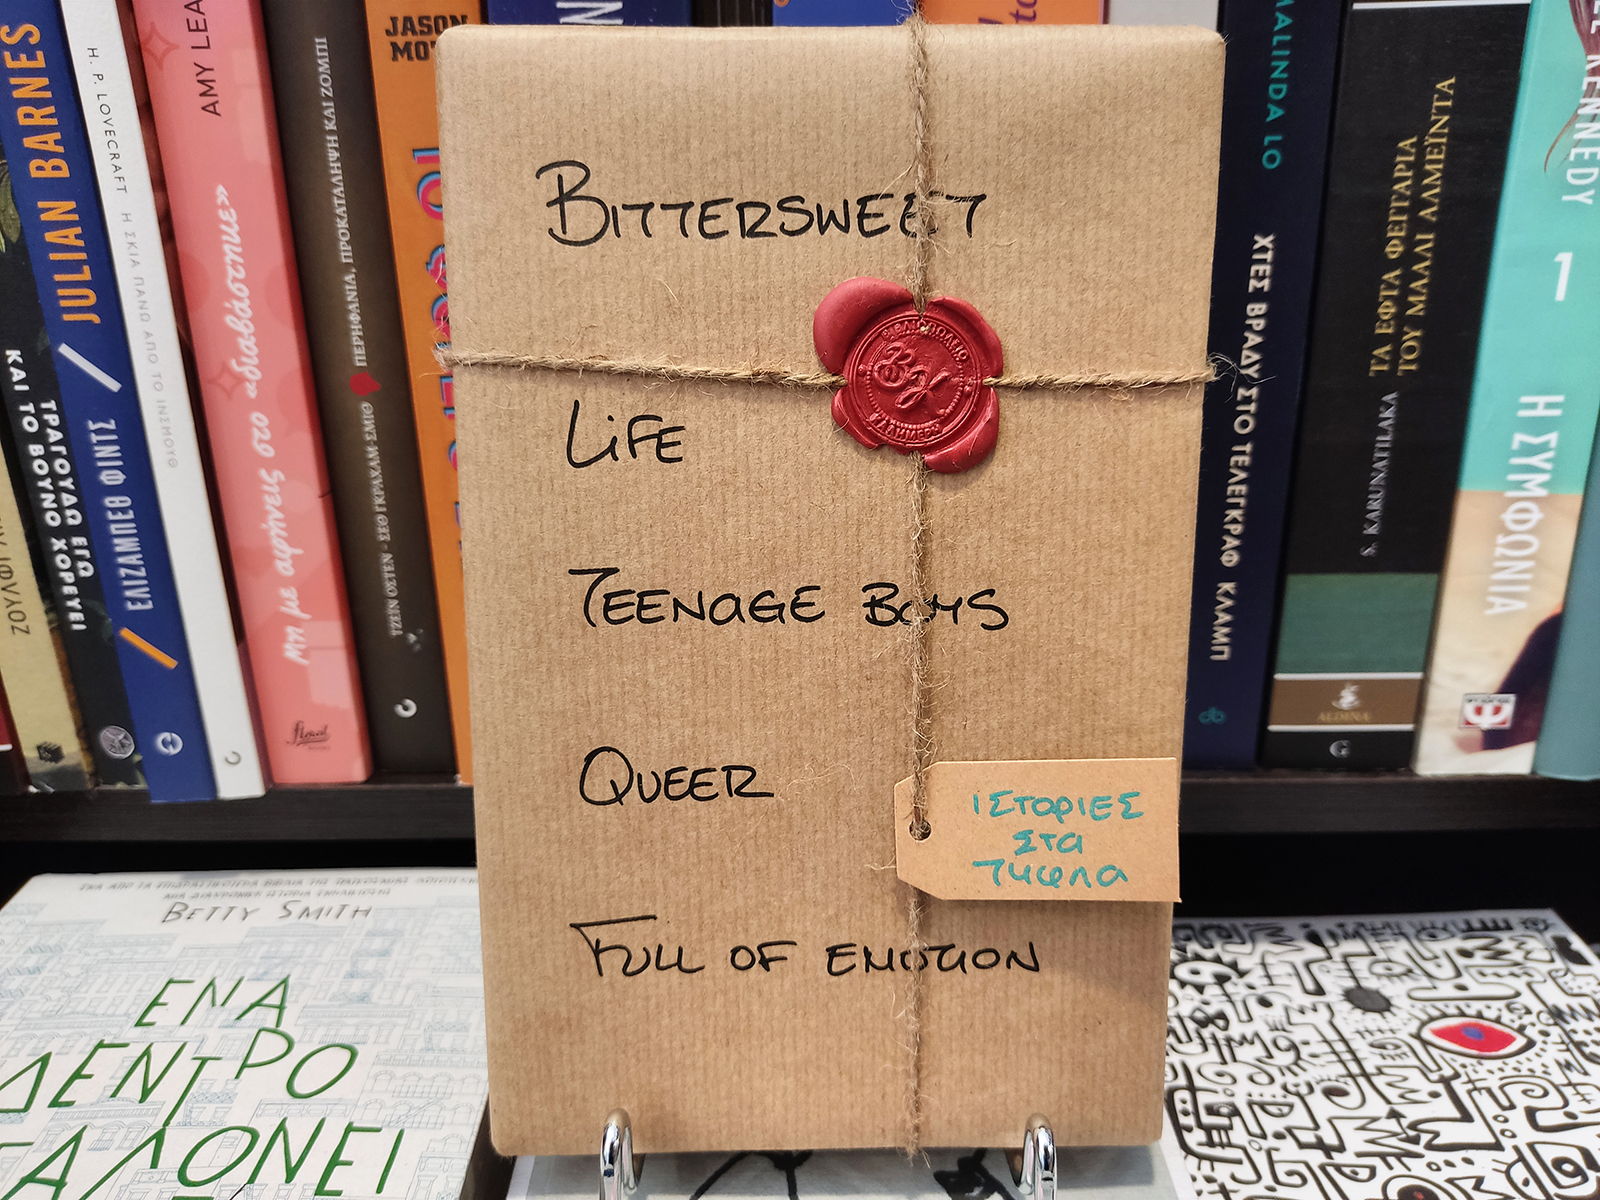 JULIAN BARNES
ΕΛΙΖΑΜΠΕΘ ΦΙΝΤΣ
ΤΡΑΓΟΥΔΩ ΕΓΩ
ΚΑΙ ΤΟ ΒΟΥΝΟ ΧΟΡΕΥΕΙ
H. P. LOVECRAFT Η ΣΚΙΑ ΠΑΝΩ ΑΠΟ ΤΟ ΙΝΣΜΟΥΘ
AMY LEA
Μη με αφήνεις στο «διαβάστηκε»
ΠΕΡΗΦΑΝΙΑ, ΠΡΟΚΑΤΑΛΗΨΗ ΚΑΙ ΖΟΜΠΙ
ΤΖΕΪΝ ΟΣΤΕΝ - ΣΕΘ ΓΚΡΑΧΑΜ-ΣΜΙΘ
JASON
BITTERSWEET
ΒΙΒΛΙΟΠΩΛΕΙΟ
LIFE
TEENAGE BOYS
QUEER
FULL OF EMOTION
ΙΣΤΟΡΙΕΣ
ΣΤΑ
ΤΥΦΛΑ
MALINDA LO
ΧΤΕΣ ΒΡΑΔΥ ΣΤΟ ΤΕΛΕΓΚΡΑΦ ΚΛΑΜΠ
ΤΑ ΕΦΤΑ ΦΕΓΓΑΡΙΑ
ΤΟΥ ΜΑΑΛΙ ΑΛΜΕΪΝΤΑ
S. KARUNATILAKA
ALDINA
G
KENNEDY
1
Η ΣΥΜΦΩΝΙΑ
BETTY SMITH
ΕΝΑ
ΔΕΝΤΡΟ